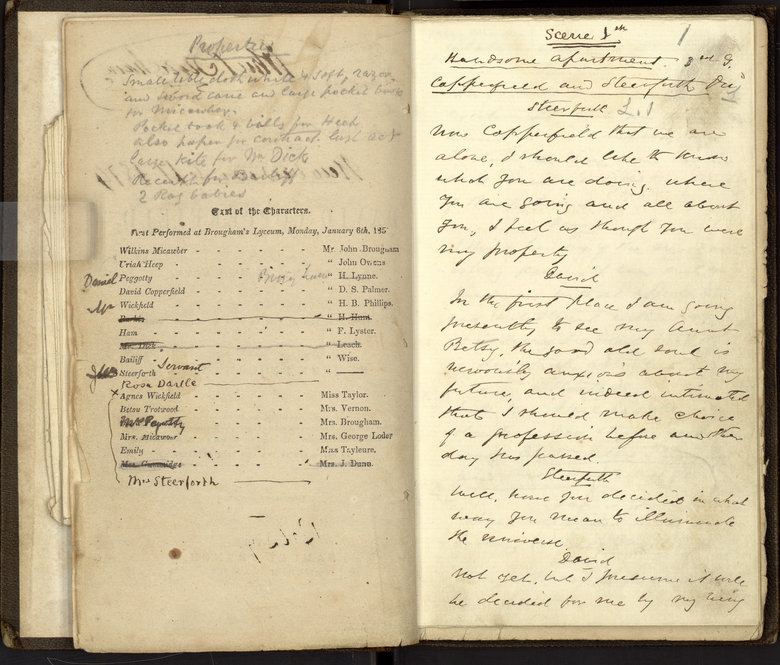 Properties
Small table cloth white & soft, razor
and sword cane and large pocket book
for Micawber
Pocket book & bills for Heep
also paper for contract last act
large kite for Mr Dick
2 Rag babies
Cast of the Characters.
First Performed at Brougham's Lyceum, Monday, January 6th, 185
Wilkins Micawber - - - - - Mr. John Brougham
Uriah Heep - - - - - " John Owens
Daniel Peggotty - - - - - " H. Lynne.
David Copperfield - - - - - " D. S. Palmer.
Mr Wickfield - - - - - " H. B. Phillips.
Barkis " H. Hunt.
Ham - - - - - " F. Lyster.
Mr. Dick " Leach.
Bailiff - - - - - " Wise.
Servant
Steerforth - - - - - " ———
Rosa Dartle
x Agnes Wickfield - - - - - Miss Taylor.
Betsy Trotwood - - - - - Mrs. Vernon.
Peggotty - - - - - Mrs. Brougham.
Mrs. Micawber - - - - - Mrs. George Loder
Emily - - - - - Miss Tayleure.
Mrs. Gummidge Mrs. J. Dunn.
Mrs Steerforth
Scene 1st 1
Handsome apartment. 3rd G.
Copperfield and Steerforth Dis
Steerforth L. 1
Now Copperfield that we are
alone, I should like to know
what you are doing, where
you are going and all about
you, I feel as though you were
my property
David
In the first place I am going
presently to see my Aunt
Betsy, the good old soul is
nervously anxious about my
future, and indeed intimated
that I should make choice
of a profession before another
day has passed
Steerforth
Well, have you decided in what
way you mean to illuminate
the universe
David
Not yet, but I presume it will
be decided for me by my being